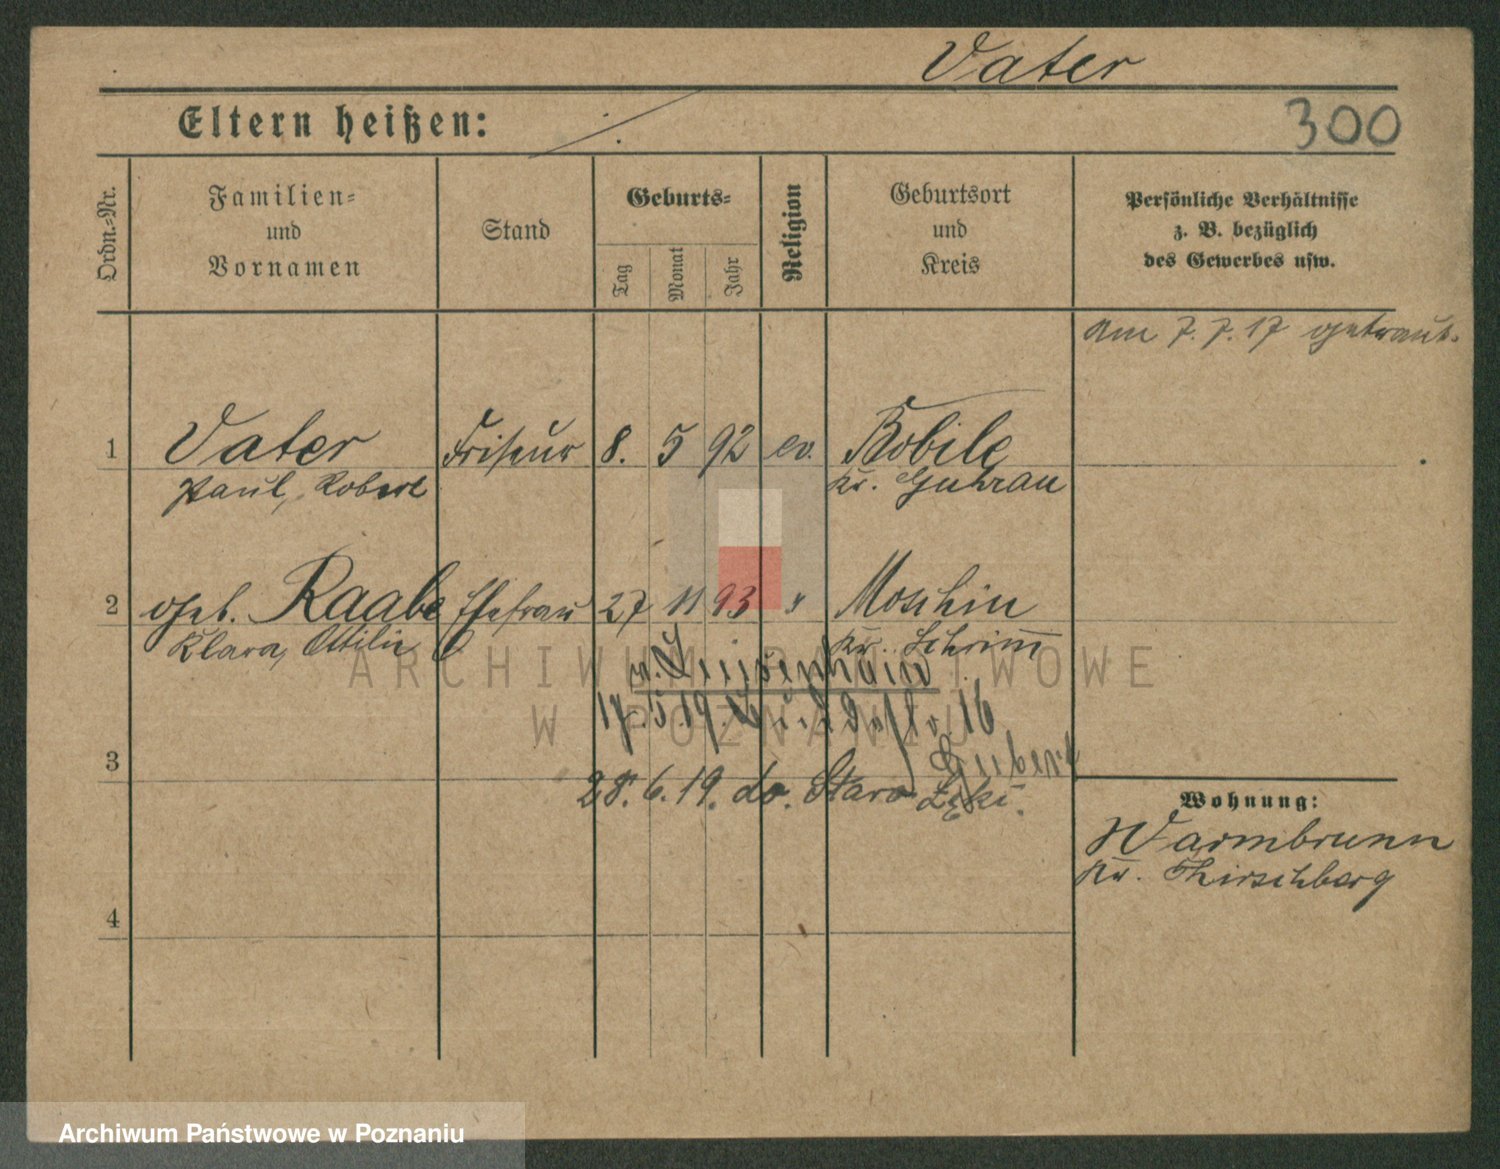 Vater
Eltern heißen:
300
Ordn.-Nr.
Familien-
und
Vornamen
Stand
Geburts-
Tag
Monat
Jahr
Religion
Geburtsort
und
Kreis
Persönliche Verhältnisse
z. B. bezüglich
des Gewerbes usw.
Am 7.7.17 getraut.
1 Vater Friseur 8. 5 92 ev. Bobile
Paul, Robert Kr. Guhrau
2 geb. Raabe Ehefrau 27 11 93 " Moschin
Klara, Ottilie Kr. Schrimm
v. Luisenhain
17.5.19 16
3
28.6.19. do. Staro Łęka.
Wohnung:
Warmbrunn
Kr. Hirschberg
4
ARCHIWUM PAŃSTWOWE
W POZNANIU
Archiwum Państwowe w Poznaniu